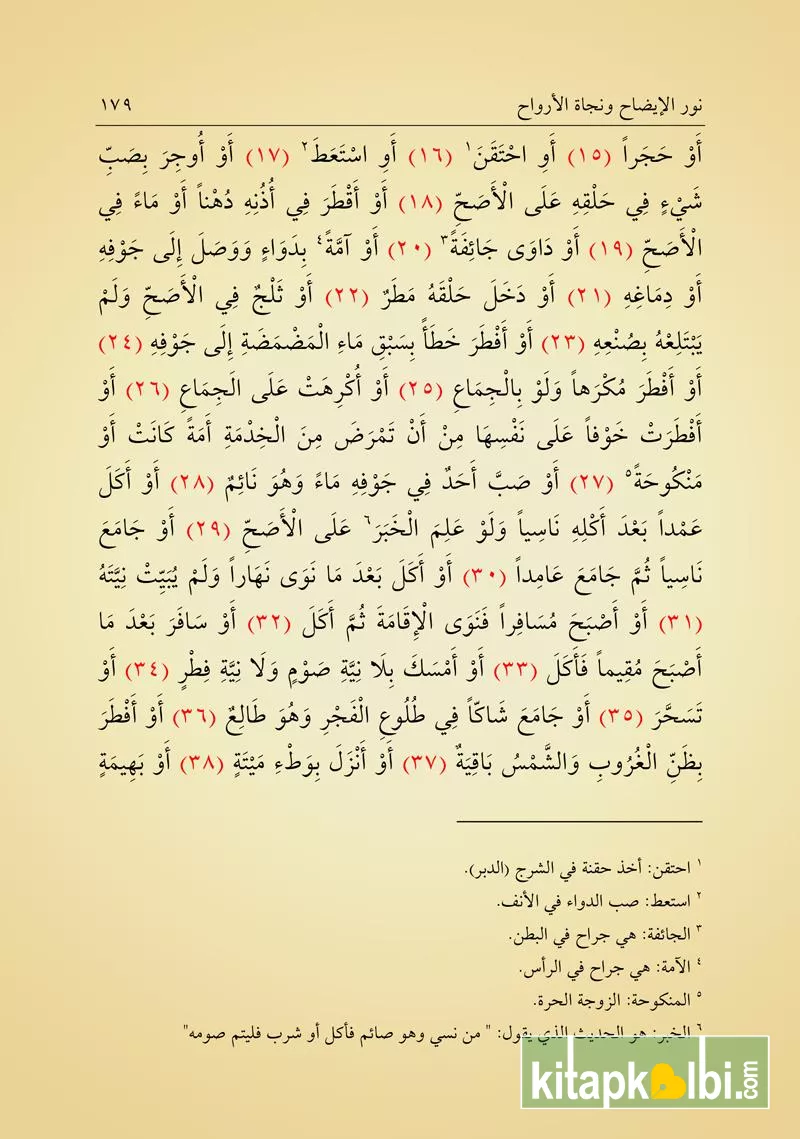 نور الإيضاح ونجاة الأرواح ١٧٩
أَوْ حَجَراً (١٥) أَوِ احْتَقَنَ١ (١٦) أَوِ اسْتَعَطَ٢ (١٧) أَوْ أُوجِرَ بِصَبِّ
شَيْءٍ فِي حَلْقِهِ عَلَى الْأَصَحِّ (١٨) أَوْ أَقْطَرَ فِي أُذُنِهِ دُهْناً أَوْ مَاءً فِي
الْأَصَحِّ (١٩) أَوْ دَاوَى جَائِفَةً٣ (٢٠) أَوْ آمَّةً٤ بِدَوَاءٍ وَوَصَلَ إِلَى جَوْفِهِ
أَوْ دِمَاغِهِ (٢١) أَوْ دَخَلَ حَلْقَهُ مَطَرٌ (٢٢) أَوْ ثَلْجٌ فِي الْأَصَحِّ وَلَمْ
يَبْتَلِعْهُ بِصُنْعِهِ (٢٣) أَوْ أَفْطَرَ خَطَأً بِسَبْقِ مَاءِ الْمَضْمَضَةِ إِلَى جَوْفِهِ (٢٤)
أَوْ أَفْطَرَ مُكْرَهاً وَلَوْ بِالْجِمَاعِ (٢٥) أَوْ أُكْرِهَتْ عَلَى الَجِمَاعِ (٢٦) أَوْ
أَفْطَرَتْ خَوْفاً عَلَى نَفْسِهَا مِنْ أَنْ تَمْرَضَ مِنَ الْخِدْمَةِ أَمَةً كَانَتْ أَوْ
مَنْكُوحَةً٥ (٢٧) أَوْ صَبَّ أَحَدٌ فِي جَوْفِهِ مَاءً وَهُوَ نَائِمٌ (٢٨) أَوْ أَكَلَ
عَمْداً بَعْدَ أَكْلِهِ نَاسِياً وَلَوْ عَلِمَ الْخَبَرَ٦ عَلَى الْأَصَحِّ (٢٩) أَوْ جَامَعَ
نَاسِياً ثُمَّ جَامَعَ عَامِداً (٣٠) أَوْ أَكَلَ بَعْدَ مَا نَوَى نَهَاراً وَلَمْ يُبَيِّتْ نِيَّتَهُ
(٣١) أَوْ أَصْبَحَ مُسَافِراً فَنَوَى الْإِقَامَةَ ثُمَّ أَكَلَ (٣٢) أَوْ سَافَرَ بَعْدَ مَا
أَصْبَحَ مُقِيماً فَأَكَلَ (٣٣) أَوْ أَمْسَكَ بِلَا نِيَّةِ صَوْمٍ وَلَا نِيَّةِ فِطْرٍ (٣٤) أَوْ
تَسَحَّرَ (٣٥) أَوْ جَامَعَ شَاكّاً فِي طُلُوعِ الْفَجْرِ وَهُوَ طَالِعٌ (٣٦) أَوْ أَفْطَرَ
بِظَنِّ الْغُرُوبِ وَالشَّمْسُ بَاقِيَةٌ (٣٧) أَوْ أَنْزَلَ بِوَطْءِ مَيْتَةٍ (٣٨) أَوْ بَهِيمَةٍ
١ احتقن: أخذ حقنة في الشرج (الدبر).
٢ استعط: صب الدواء في الأنف.
٣ الجائفة: هي جراح في البطن.
٤ الآمة: هي جراح في الرأس.
٥ المنكوحة: الزوجة الحرة.
٦ الخبر: هو الحديث الذي يقول: " من نسي وهو صائم فأكل أو شرب فليتم صومه"
kitapkalbi.com